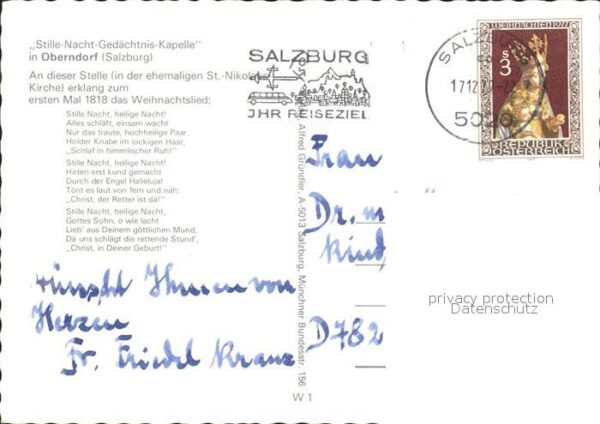 „Stille-Nacht-Gedächtnis-Kapelle"
in Oberndorf (Salzburg)
An dieser Stelle (in der ehemaligen St.-Nikolaus
Kirche) erklang zum
ersten Mal 1818 das Weihnachtslied:
Stille Nacht, heilige Nacht!
Alles schläft, einsam wacht
Nur das traute, hochheilige Paar.
Holder Knabe im lockigen Haar,
„Schlaf in himmlischer Ruh!"
Stille Nacht, heilige Nacht!
Hirten erst kund gemacht
Durch der Engel Halleluja!
Tönt es laut von fern und nah:
„Christ, der Retter ist da!"
Stille Nacht, heilige Nacht,
Gottes Sohn, o wie lacht
Lieb' aus Deinem göttlichen Mund,
Da uns schlägt die rettende Stund',
„Christ, in Deiner Geburt!"
wünscht Ihnen von
Herzen
Fr. Friedel Kranz
Alfred Gründler, A-5013 Salzburg, Münchner Bundesstr. 156
W 1
SALZBURG
IHR REISEZIEL
SALZ
17.12.77
WEIHNACHTEN 1977
S 3
REPUBLIK
ÖSTERREICH
Frau
Dr. m
Kind
D 782
privacy protection
Datenschutz